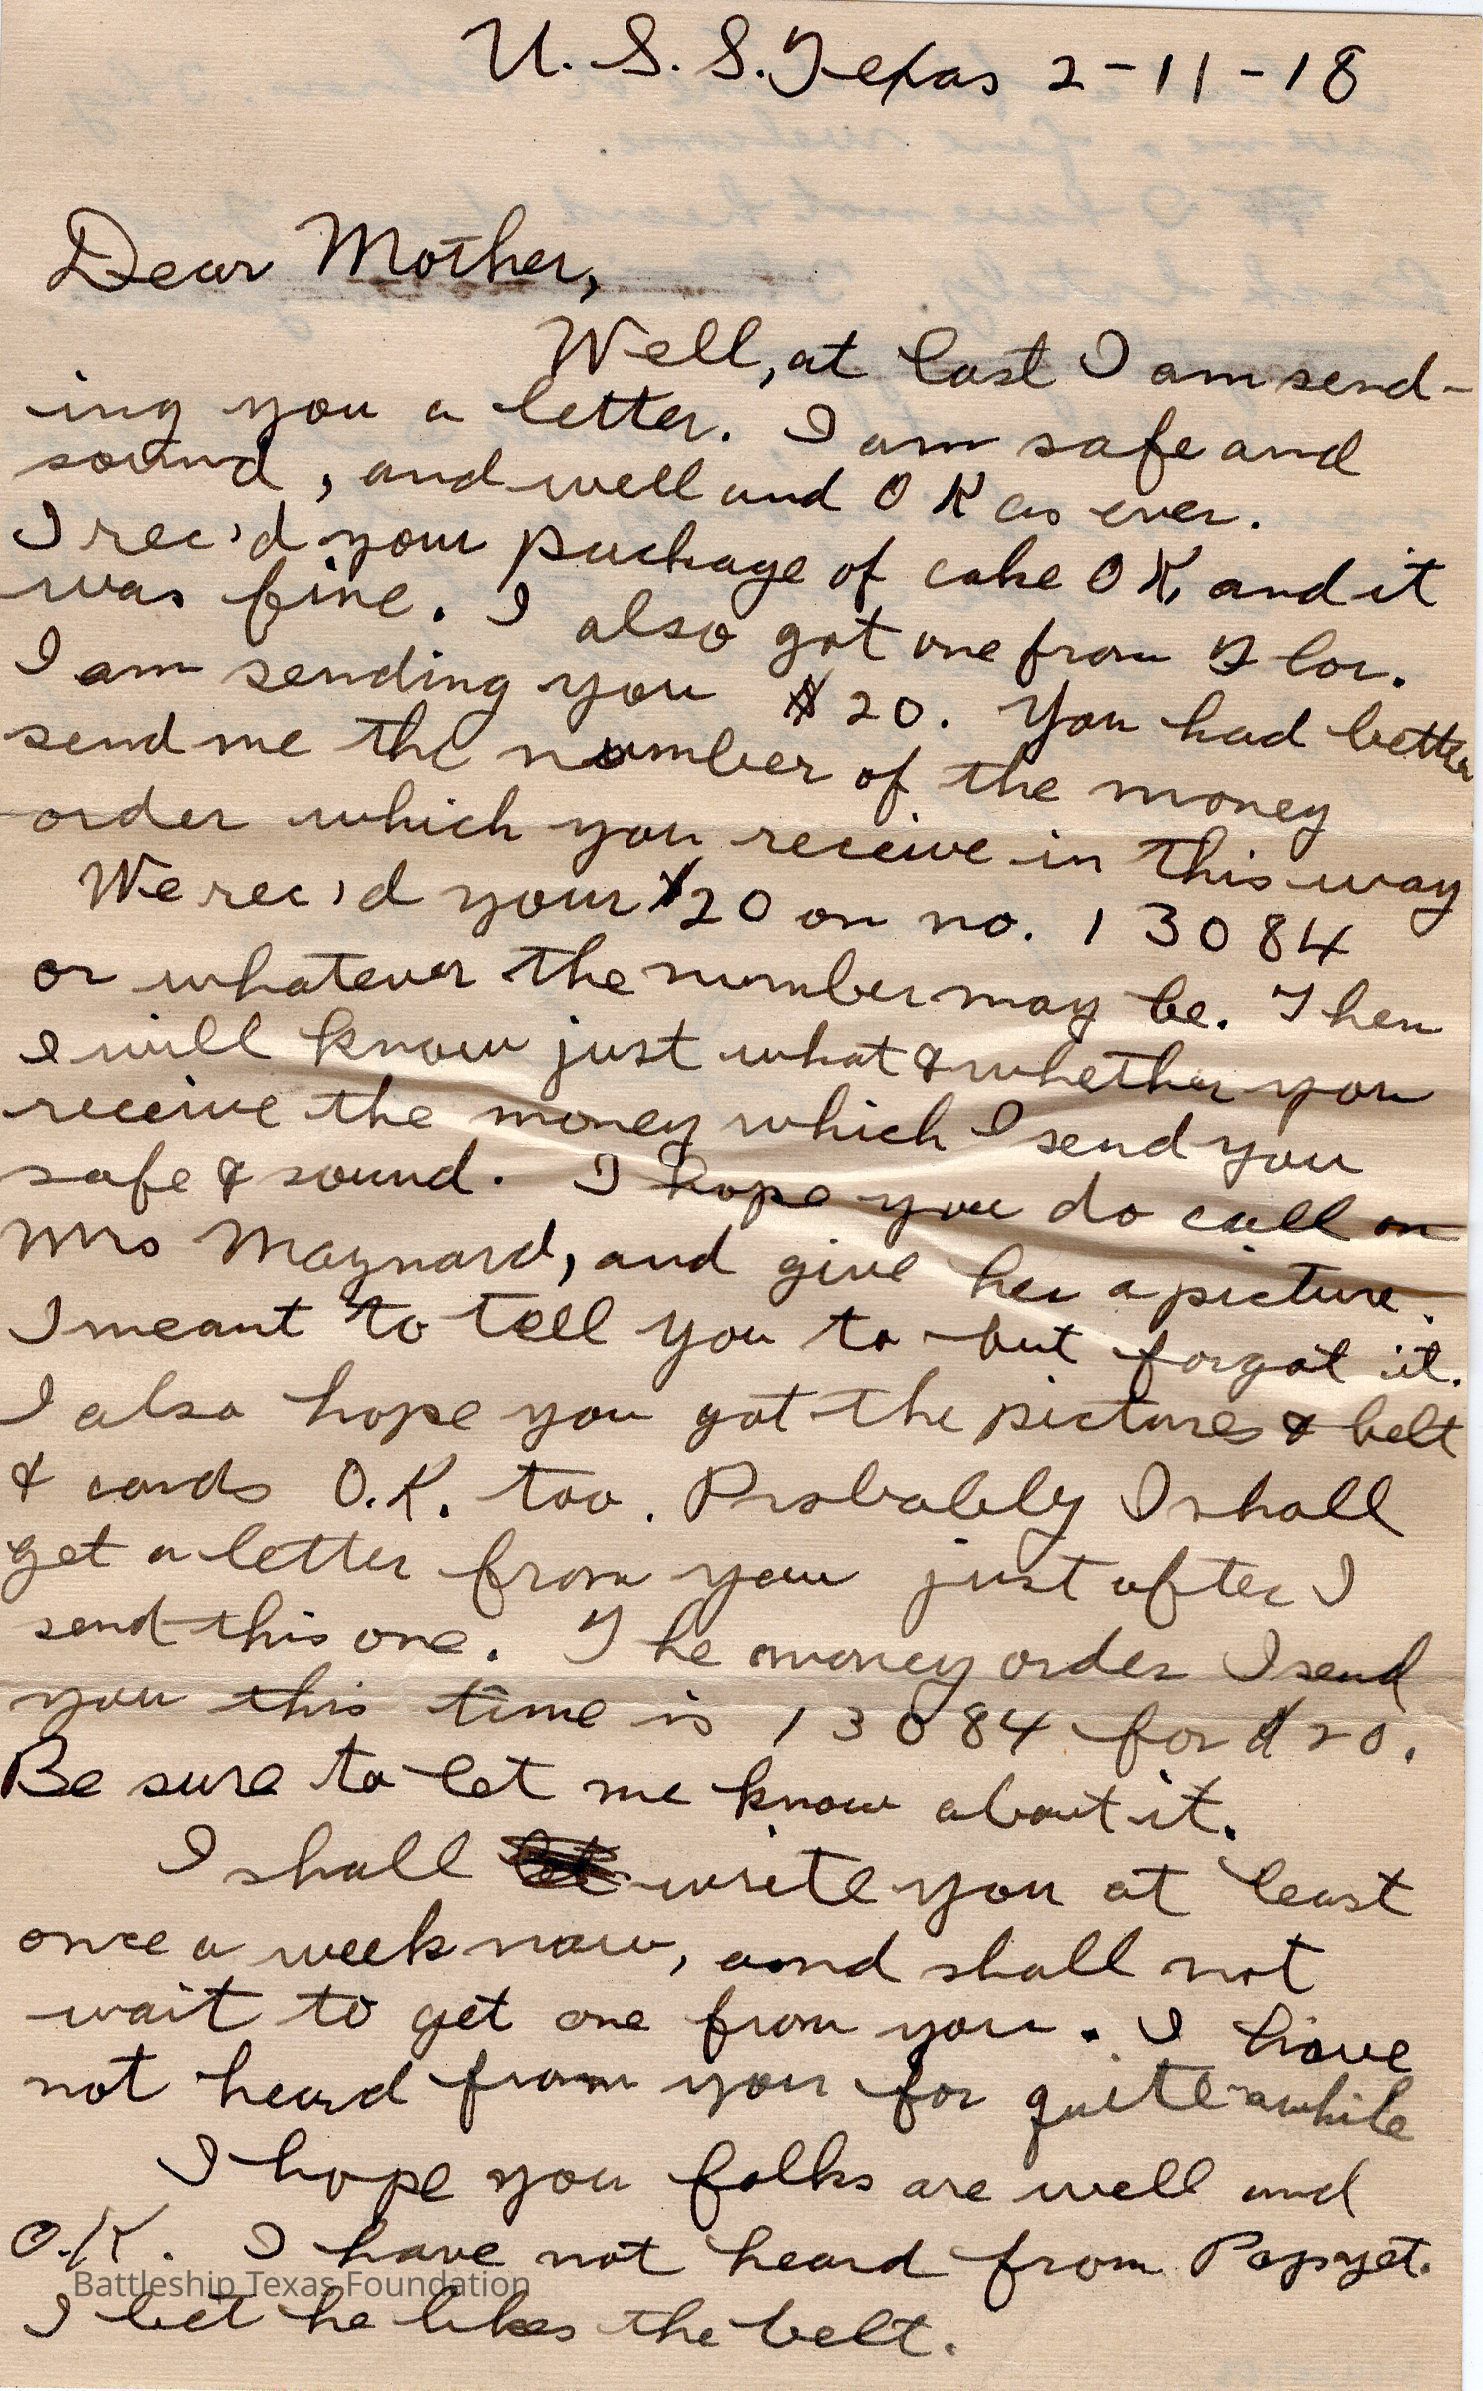 U.S.S. Texas 2-11-18
Dear Mother,
Well, at last I am send-
ing you a letter. I am safe and
sound, and well and O K as ever.
I rec'd your package of cake O K, and it
was fine. I also got one from Flor.
I am sending you $20. You had better
send me the number of the money
order which you receive in this way
We rec'd your $20 on no. 13084
or whatever the number may be. Then
I will know just what & whether you
receive the money which I send you
safe & sound. I hope you do call on
Mrs Maynard, and give her a picture.
I meant to tell you to but forgot it.
I also hope you got the pictures & belt
& cards O.K. too. Probably I shall
get a letter from you just after I
send this one. The money order I send
you this time is 13084 for $20.
Be sure to let me know about it.
I shall write you at least
once a week now, and shall not
wait to get one from you. I have
not heard from you for quite awhile
I hope you folks are well and
O.K. I have not heard from Pop yet.
Battleship Texas Foundation
I bet he likes the belt.